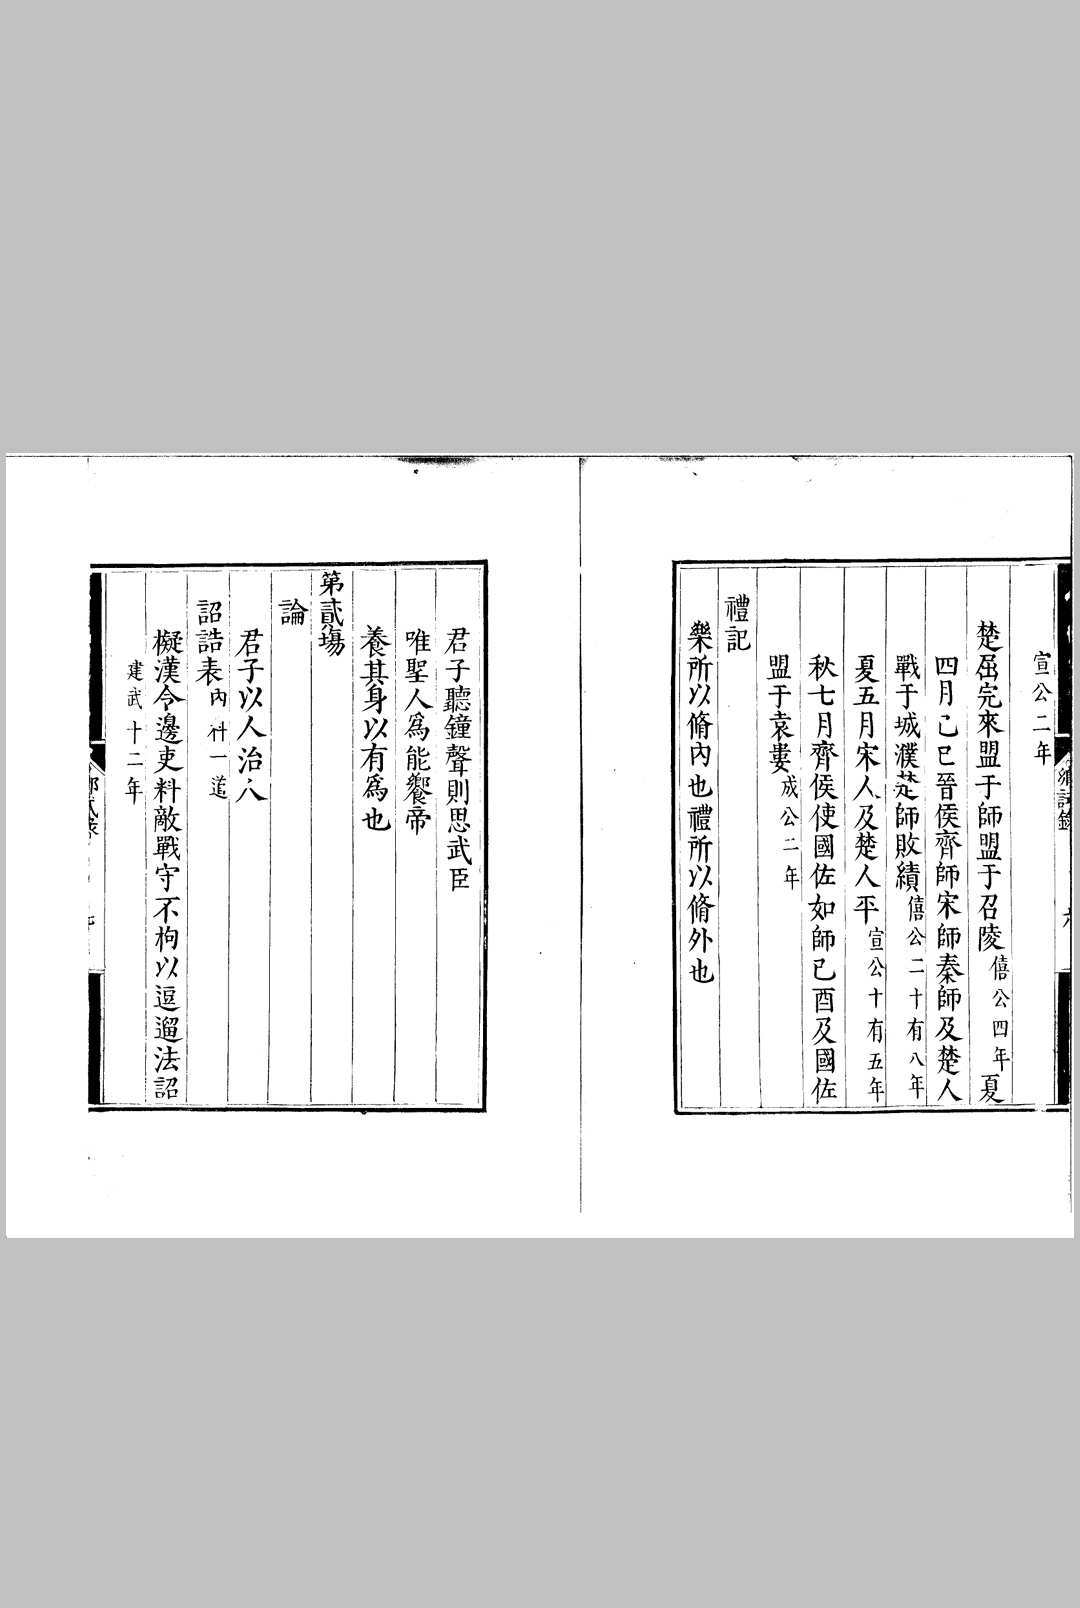 宣公二年
楚屈完來盟于師盟于召陵僖公四年夏
四月己巳晉侯齊師宋師秦師及楚人
戰于城濮楚師敗績僖公二十有八年
夏五月宋人及楚人平宣公十有五年
秋七月齊侯使國佐如師己酉及國佐
盟于袁婁成公二年
禮記
樂所以脩內也禮所以脩外也
鄉試錄
君子聽鐘聲則思武臣
唯聖人爲能饗帝
養其身以有爲也
第貳場
論
君子以人治人
詔誥表內科一道
擬漢令邊吏料敵戰守不拘以逗遛法詔
建武十二年
鄉試錄